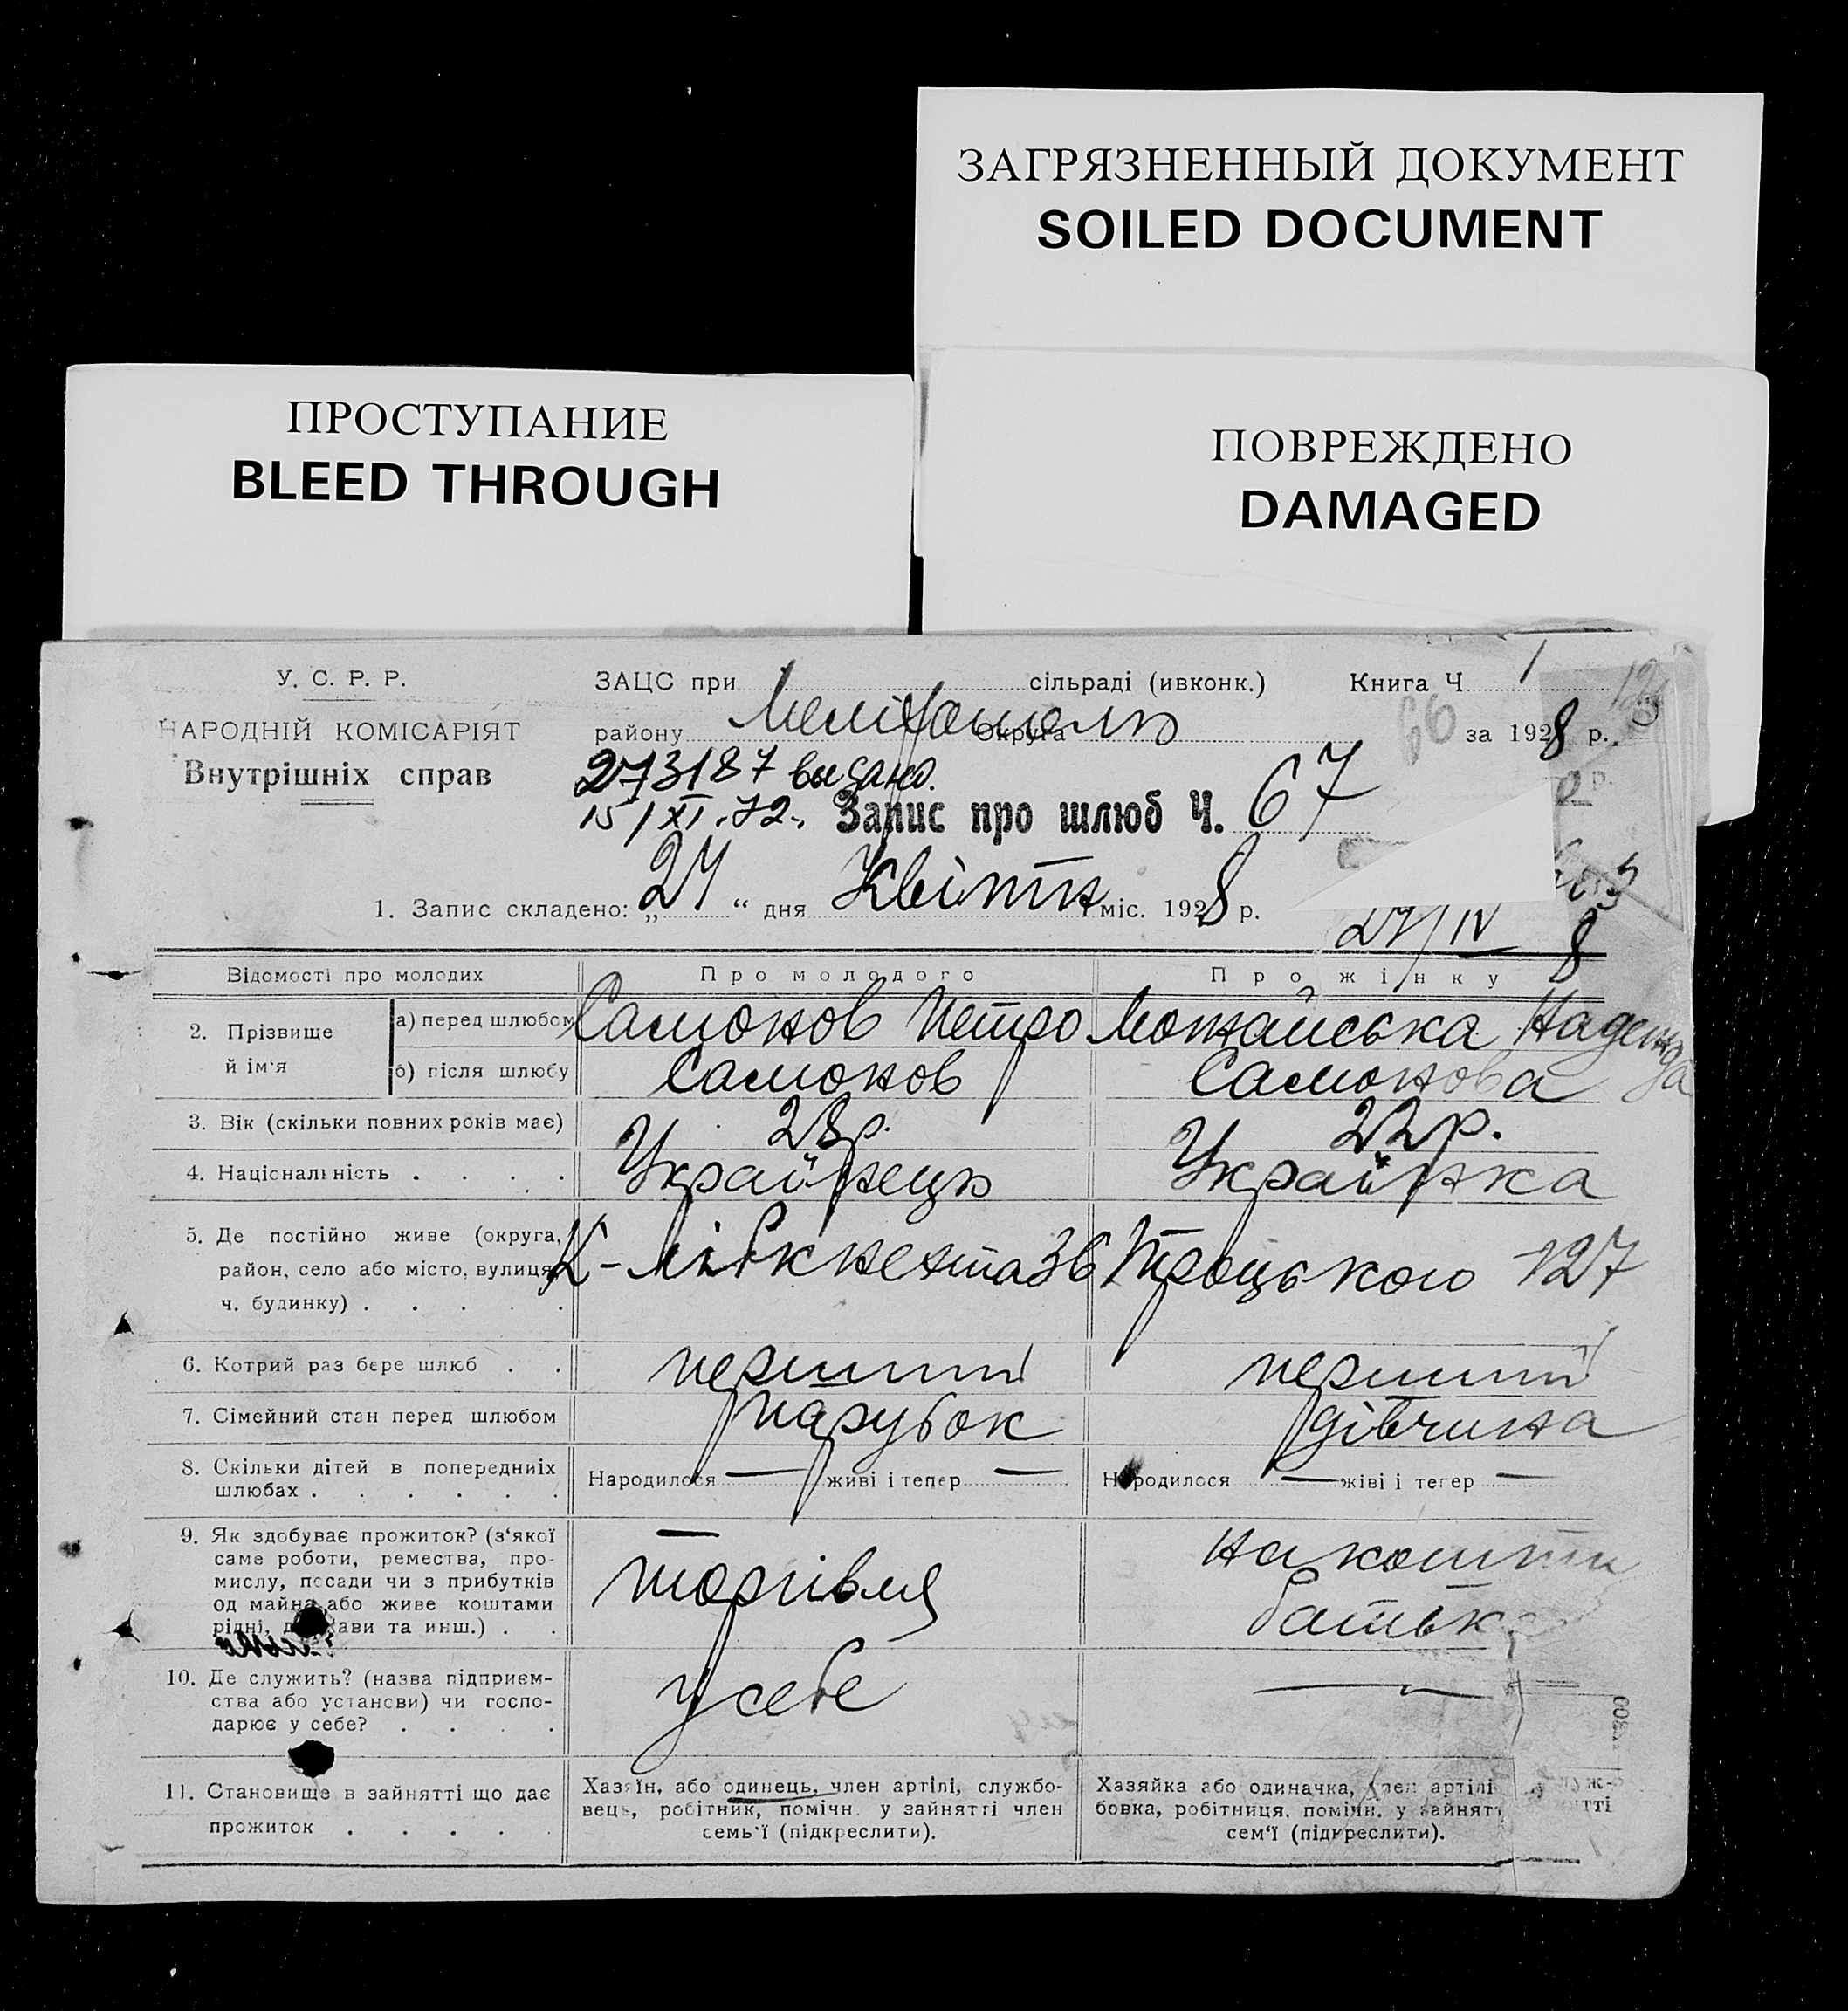 ЗАГРЯЗНЕННЫЙ ДОКУМЕНТ
SOILED DOCUMENT
ПРОСТУПАНИЕ
BLEED THROUGH
ПОВРЕЖДЕНО
DAMAGED
У. С. Р. Р.
НАРОДНІЙ КОМІСАРІЯТ
Внутрішніх справ
ЗАЦС при сільраді (ивконк.) Книга Ч 1
району Мелітополь Округа за 1928 р.
66
273187 выдано.
15/XI.72. Запис про шлюб Ч. 67
1. Запис складено: „24“ дня Квітня міс. 1928 р.
24/IV
8
Відомості про молодих Про молодого Про жінку
2. Прізвище й ім'я а) перед шлюбом Самонов Петро Можайська Надежда
б) після шлюбу Самонов Самонова
3. Вік (скільки повних років має) 28 р. 22 р.
4. Національність . . . . Українець Українка
5. Де постійно живе (округа,
район, село або місто, вулиця,
ч. будинку) . . . . .
К-Лібкнехта 36 Троцького 127
6. Котрий раз бере шлюб . . перший перший
7. Сімейний стан перед шлюбом парубок дівчина
8. Скільки дітей в попередниіх
шлюбах . . . . . .
Народилося — живі і тепер — Народилося — живі і тепер —
9. Як здобуває прожиток? (з'якої
саме роботи, ремества, про-
мислу, посади чи з прибутків
од майна або живе коштами
рідні, держави та инш.) . .
торгівля
на кошти
батька
10. Де служить? (назва підприєм-
ства або установи) чи госпо-
дарює у себе? . . . .
у себе —
11. Становище в зайнятті що дає
прожиток . . . . .
Хазяїн, або одинець, член артілі, службо-
вець, робітник, помічн. у зайнятті член
семь'ї (підкреслити).
Хазяйка або одиначка, член артілі
бовка, робітниця, помічн. у зайнятт
сем'ї (підкреслити).